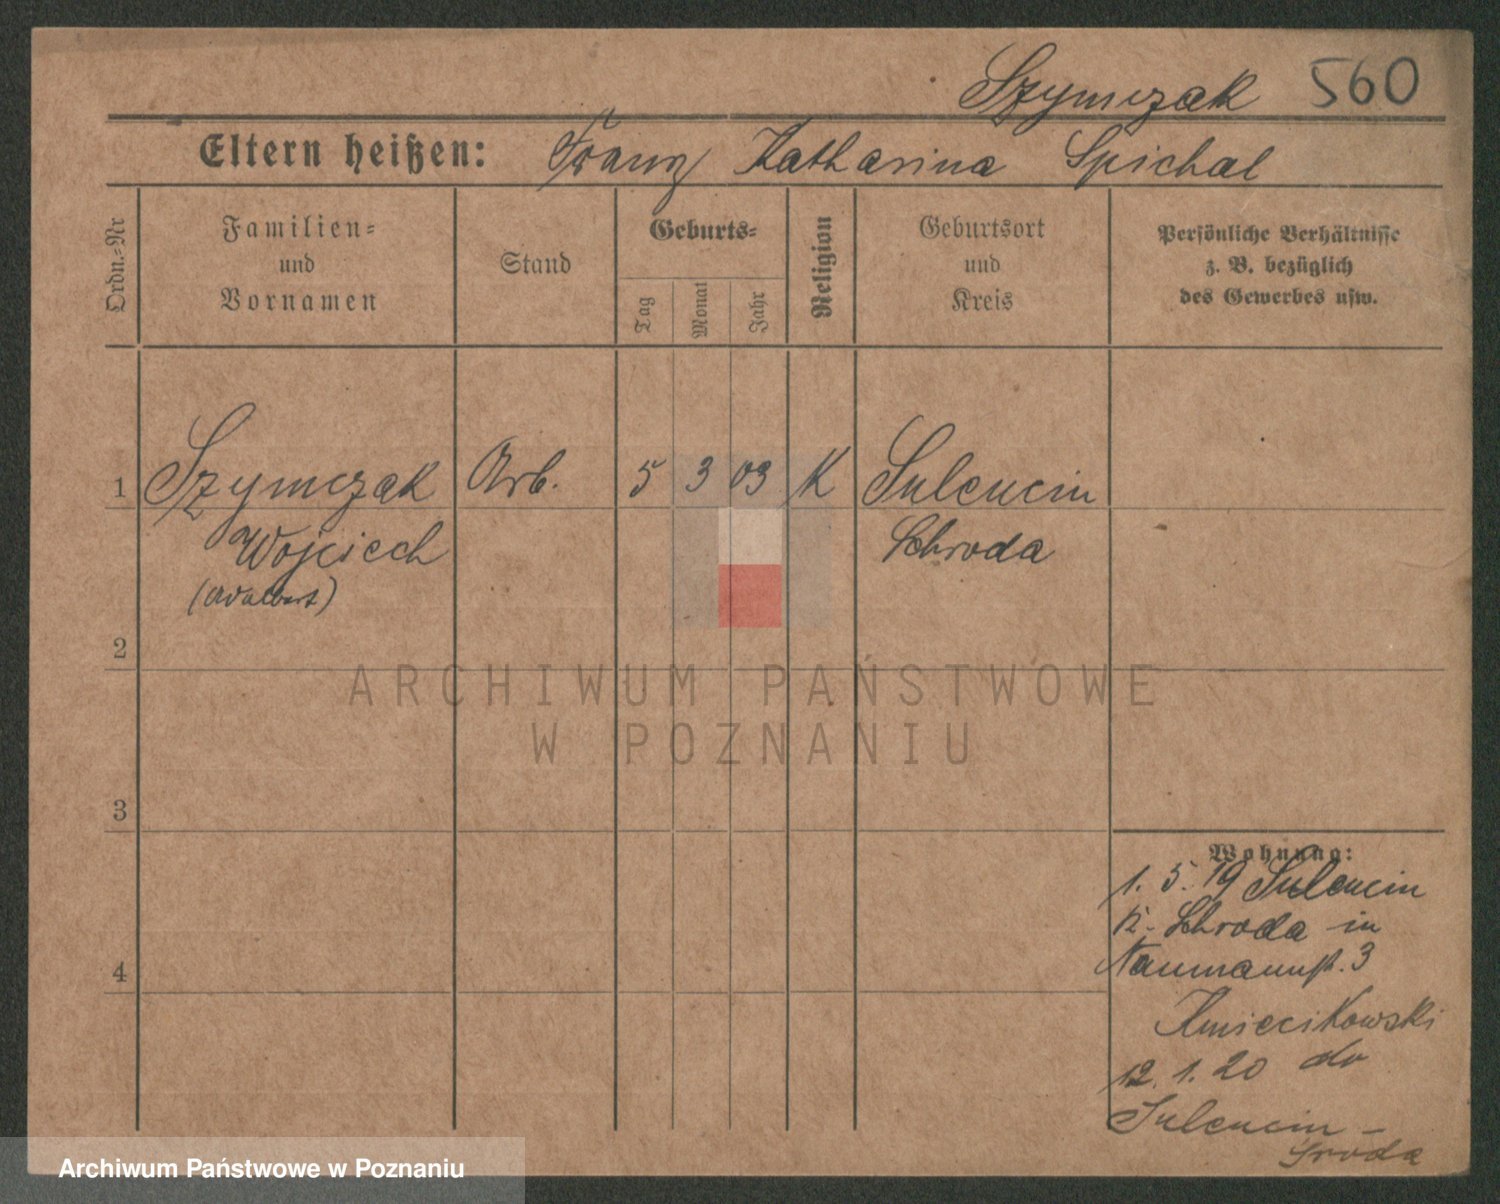 Szymczak 560
Eltern heißen: Franz Katharina Spichal
Ordn.-Nr
Familien-
und
Vornamen
Stand
Geburts-
Tag
Monat
Jahr
Religion
Geburtsort
und
Kreis
Persönliche Verhältnisse
z. B. bezüglich
des Gewerbes usw.
1 Szymczak Arb. 5 3 03 K Sulencin
Wojciech Schroda
(Adalbert)
2
ARCHIWUM PAŃSTWOWE
W POZNANIU
3
Wohnung:
1. 5. 19 Sulencin
K. Schroda in
4 Naumannst. 3
Kmiecikowski
12. 1. 20 do
Sulencin -
Środa
Archiwum Państwowe w Poznaniu